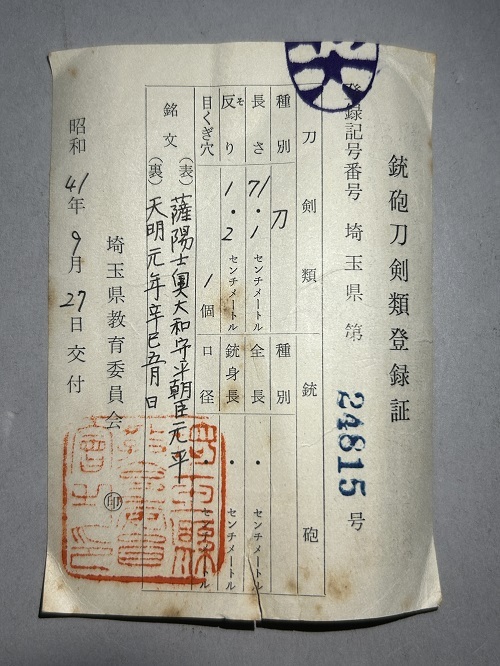 銃砲刀剣類登録証
登録記号番号 埼玉県 第 24815 号
刀剣類 銃砲
種別 刀 種別
長さ 71.1 センチメートル 全長 ・ センチメートル
反り 1.2 センチメートル 銃身長 ・ センチメートル
そ
目くぎ穴 1個 口径 ・ センチメートル
銘文 (表) 薩陽士奥大和守平朝臣元平
(裏) 天明元年辛巳五月日
埼玉県教育委員会 ㊞
昭和41年9月27日交付